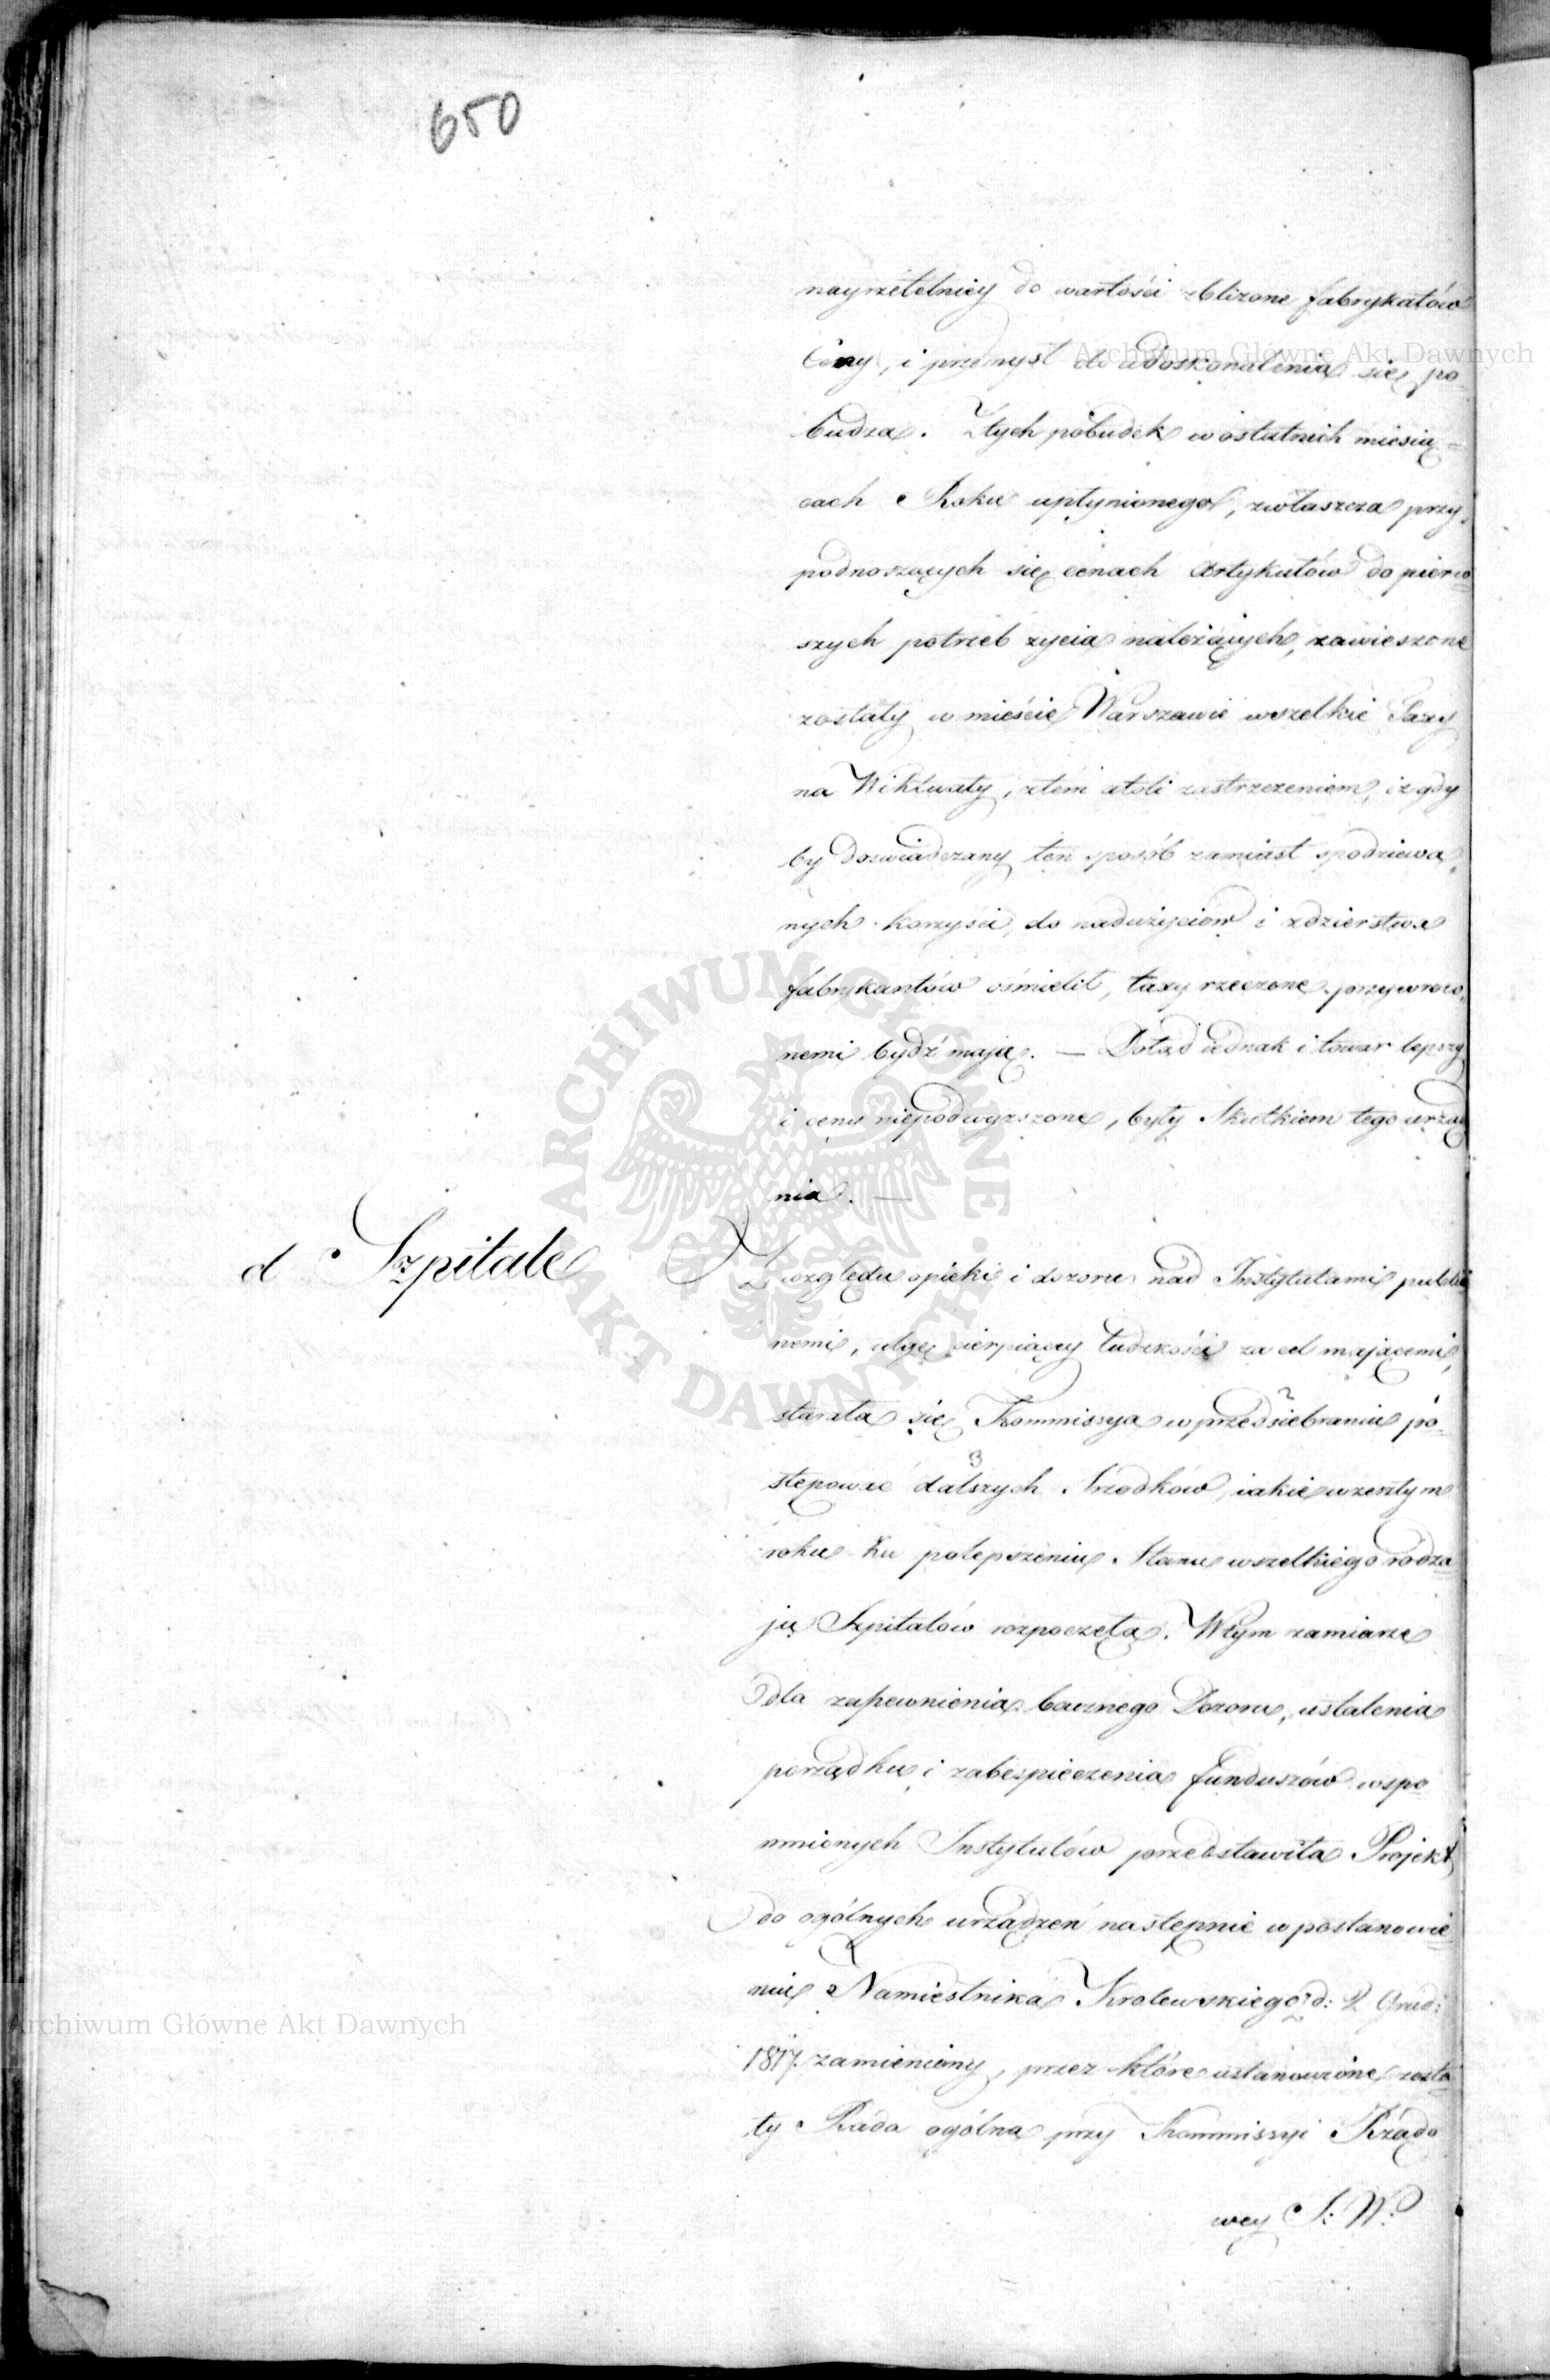 650
nayrzetelniey do wartości zbliżone fabrykatów
Ceny, i przemysł do udoskonalenia się po
budza. Ztych pobudek w ostatnich miesią=
cach Roku upłynionego, zwłaszcza przy
podnoszących się cenach Artykułów do pierw=
szych potrzeb życia należących, zawieszone
zostały w mieście Warszawie wszelkie Taxy
na Wiktuały, z tém atoli zastrzeżeniem, iż gdy
by doświadczany ten sposób zamiast spodziewa,
nych korzyści, do nadużyciów i zdzierstwa
fabrykantów ośmielił, taxy rzeczone przywróco,
nemi bydź mają. — Dotąd iednak i towar lepszy
i cena niepodwyższona, były Skutkiem tego urządze
nia. —
d Szpitale
Z względu opieki i dozoru nad Instytutami publicz
nemi, ulgę cierpiącey ludzkości za cel mającemi,
starała się Kommissya w przedsiebraniu po-
stępować dalszych Srzodków, iakie w zeszłym
roku ku polepszeniu Stanu wszelkiego rodza=
ju Szpitalów rozpoczęła. W tym zamiarze
dla zapewnienia bacznego Dozoru, ustalenia
porządku i zabezpieczenia funduszów wspo
mnionych Instytutów przedstawiła Projekt
do ogólnych urządzeń następnie w postanowie=
niu Namiestnika Krolewskiego d: 2 Grud:
1817. zamieniony, przez które ustanowione zosta=
ły Rada ogólna przy Kommissyi Rządo
wey S: W:
Archiwum Główne Akt Dawnych
Archiwum Główne Akt Dawnych
ARCHIWUM GŁÓWNE AKT DAWNYCH